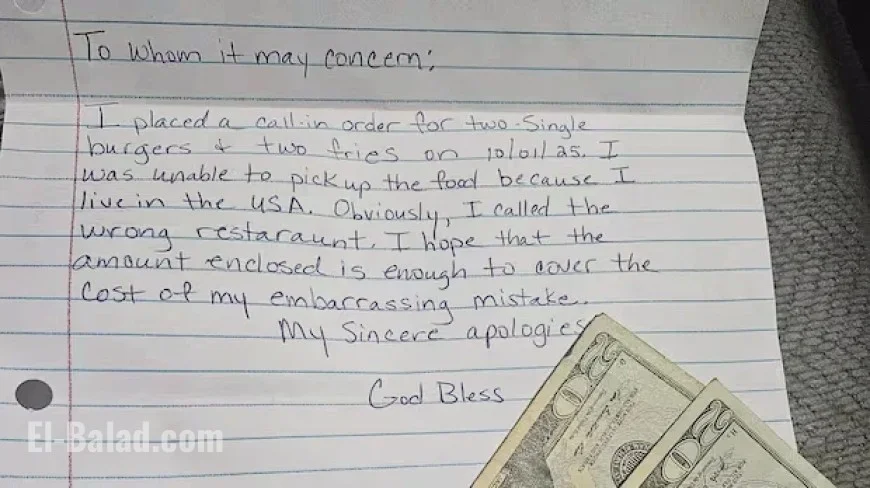 To whom it may concern:
I placed a call-in order for two single
burgers & two fries on 10/01/25. I
was unable to pick up the food because I
live in the USA. Obviously, I called the
wrong restaraunt. I hope that the
amount enclosed is enough to cover the
cost of my embarrassing mistake.
My Sincere apologies
God Bless
20
20
El-Balad.com